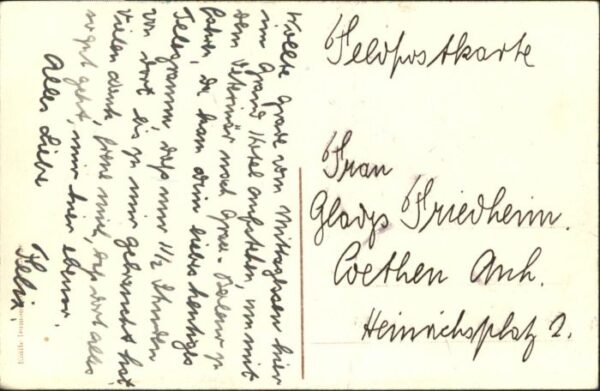 Feldpostkarte
Frau
Gladys Friedheim.
Coethen Anh.
Heinrichsplatz 2.
Wollte grade vom Mittagessen hier
im Grand Hotel aufstehen, um mit
dem Veterinär nach zu
fahren, da kam dein liebes heutiges
Telegramm, das nur 1 1/2 Stunden
von dort bis zu mir gebraucht hat.
Vielen Dank, freue mich, daß dort alles
so gut geht, mir hier ebenso.
Alles Liebe Felix.